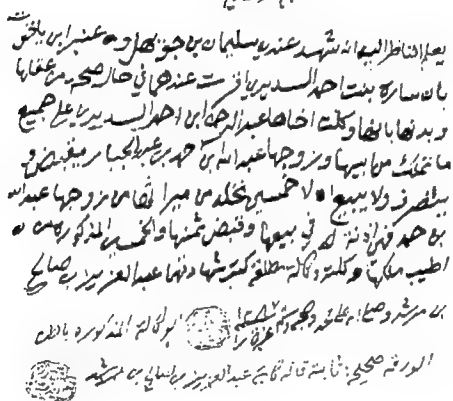 يعلم الناظر اليه انه شهد عندي سليمان بن حوقل و عنبر ابن بلخوت
بان ساره بنت احمد السديري اقرت عندهما في حال صحة من عقلها
وبدنها بانها وكلت اخاها عبدالرحمن ابن احمد السديري على جميع
ما تملك من ابيها وزوجها عبدالله بن حمد بن عبدالجبار يقبض و
يتصرف ولا يبيع الا خمسين نخله من ميراثها من زوجها عبدالله
بن حمد فهي اذنة له في بيعها وقبض ثمنها والخمسين المذكوره من
اطيب ملكها وكلته وكالة مطلقه كتبه شهادتهما عبدالعزيز بن صالح
بن مرشد وصلى الله على محمد وصحبه وسلم ١٢٨٧ الوكالة المذكوره باطن
الورقه صحيحة ثابتة قاله كاتبه عبدالعزيز بن صالح بن مرشد